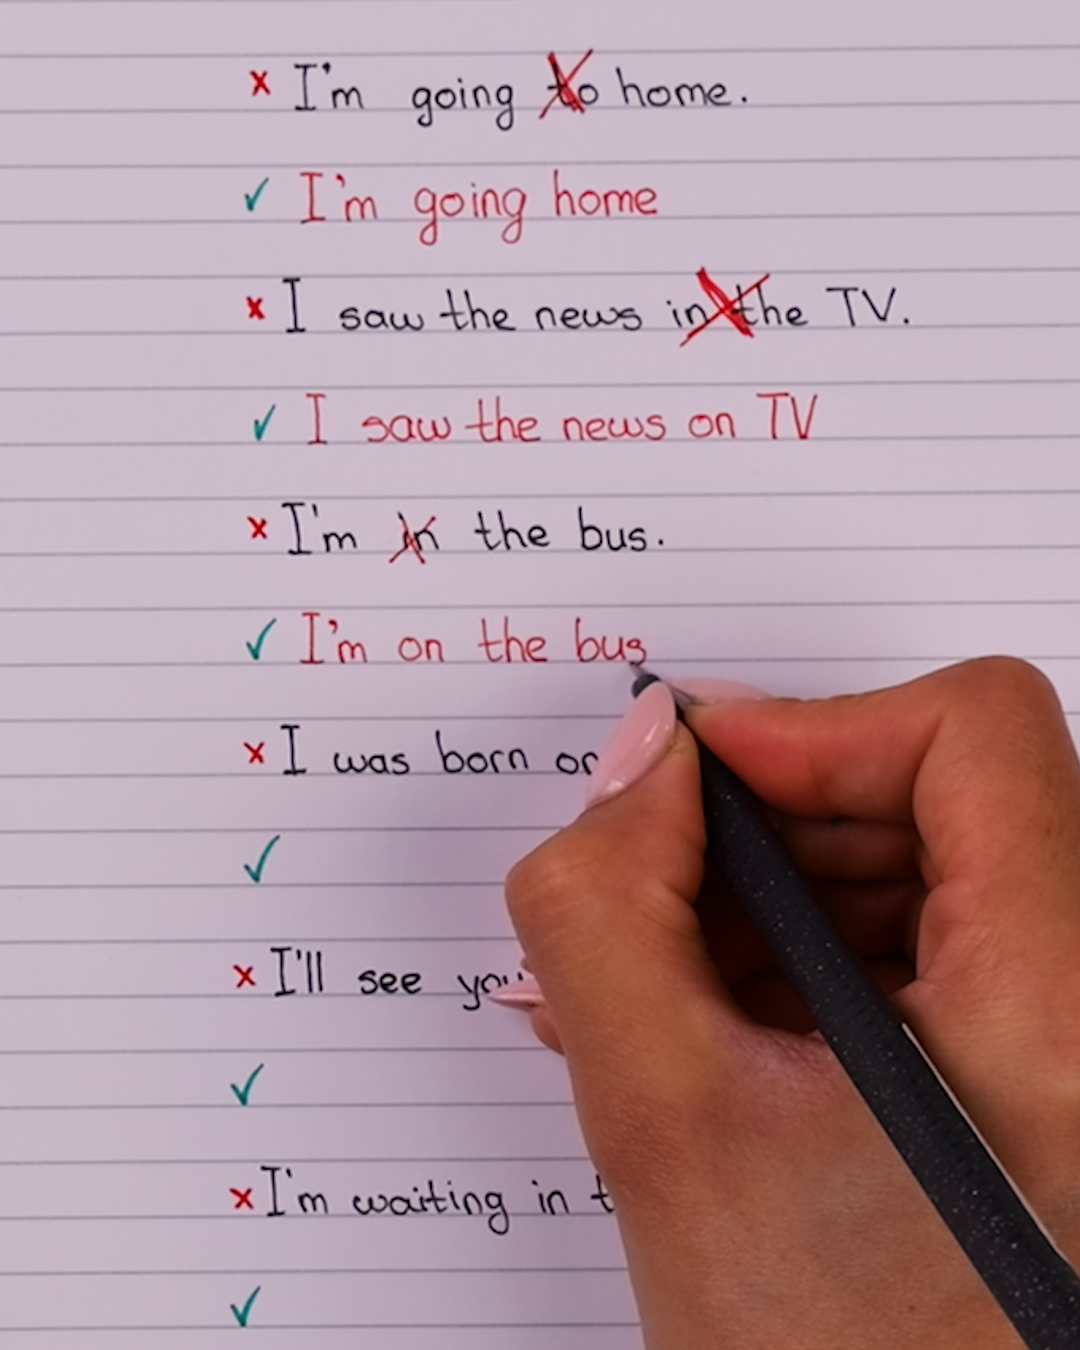 x I'm going to home.
✓ I'm going home
x I saw the news in the TV.
✓ I saw the news on TV
x I'm in the bus.
✓ I'm on the bus
x I was born
✓
x I'll see
✓
x I'm waiting in
✓